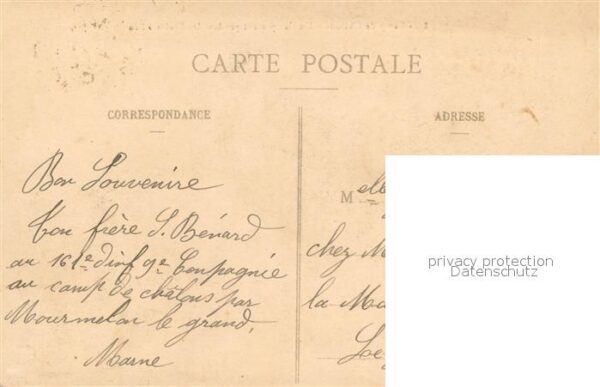 CARTE POSTALE
CORRESPONDANCE
ADRESSE
Bon Souvenire
Ton frère S. Bénard
au 161e d'inf 9e Conpagnie
au camp de châlons par
Mourmelon le grand,
Marne
Melle
chez M
la Ma
privacy protection
Datenschutz